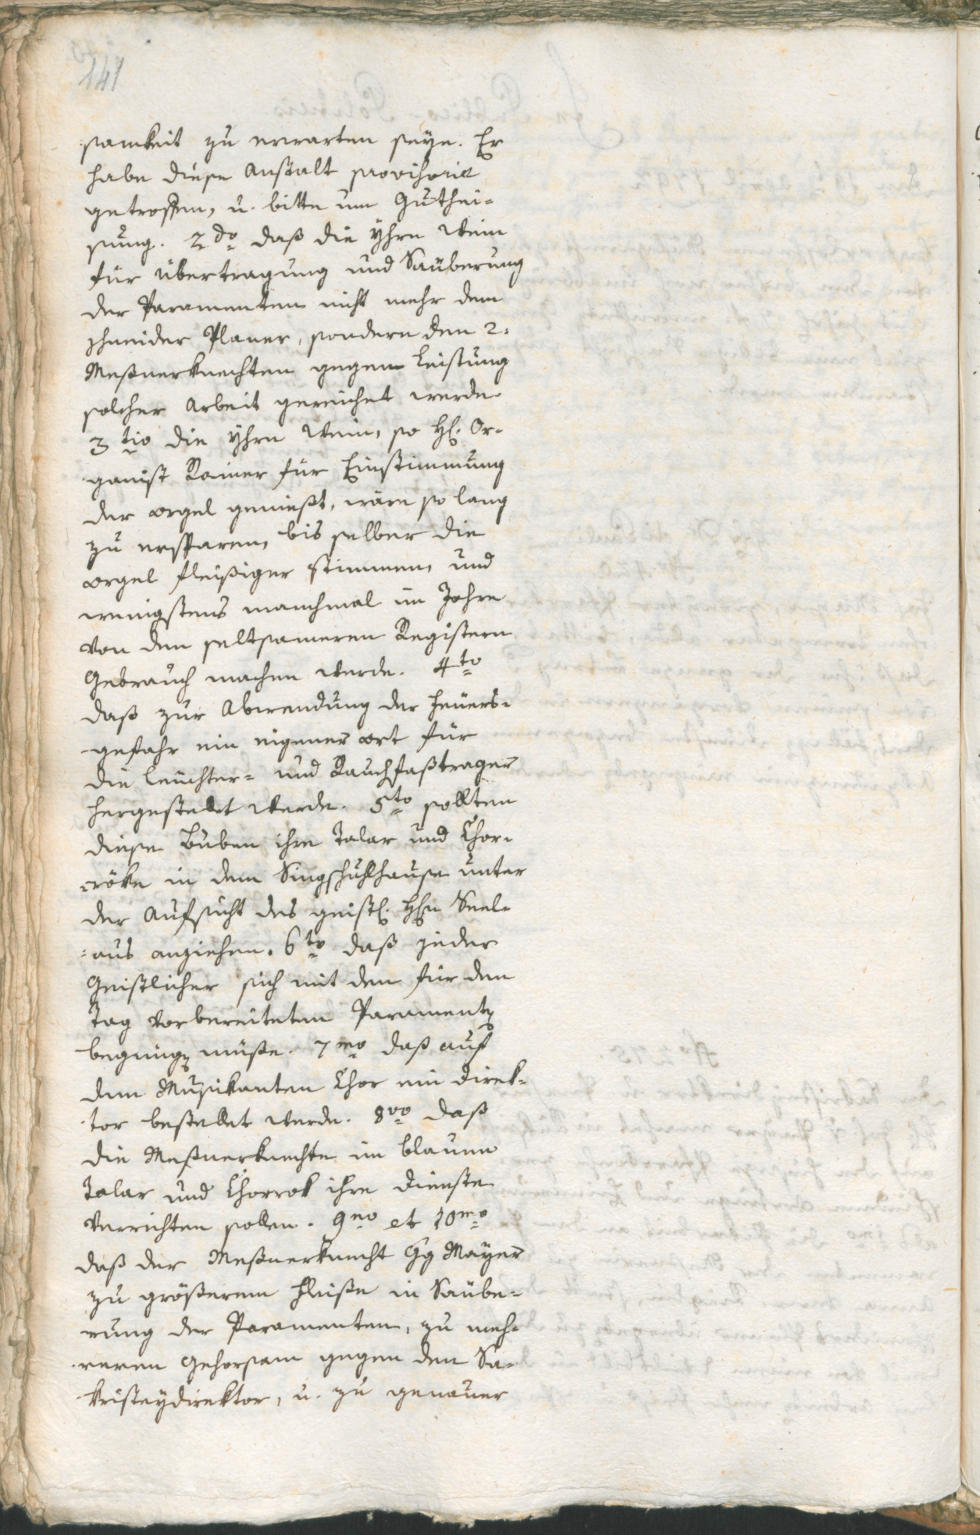 141
samkeit zu erwarten seye. Er
habe diese Anstalt provisorie
getroffen, u. bitte um Gutthei-
sung. 2do daß die Yhrn Wein
für Übertragung und Säuberung
der Paramenten nicht mehr dem
Schneider Planer, sondern den 2.
Meßnerknechten gegen Leistung
solcher Arbeit gereichet werde.
3tio die Yhrn Wein, so H. Or-
ganist Rainer für Einstimmung
der Orgel genießt, wäre so lang
zu ersparen, bis selber die
Orgel fleißiger stimmen, und
wenigstens manchmal im Jahre
von den seltsameren Registern
Gebrauch machen werde. 4to
daß zur Abwendung der Feuers-
gefahr ein eigener Ort für
die Leuchter- und Rauchfaßtrager
hergestellt werde. 5to sollten
diese Buben ihre Talar und Chor-
röke in dem Singschuhlhause unter
der Aufsicht des geistl. Hhn Seel-
aus anziehen. 6to daß jeder
Geistlicher sich mit den für den
Tag vorbereiteten Paramenten
begnügen müße. 7mo daß auf
dem Musikanten Chor ein Direk-
tor bestellet werde. 8vo daß
die Meßnerknechte im blauen
Talar und Chorrok ihre Dienste
verrichten sollen. 9no et 10mo
daß der Meßnerknecht Gg Mayer
zu größerem Fleiße in Säube-
rung der Paramenten, zu meh-
reren Gehorsam gegen den Sa-
kristeydirektor, u. zu genauer